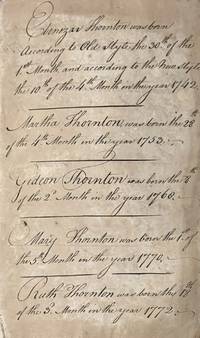 Ebenezar Thornton was born
According to Old Style the 30th of the
1st Month and according to the New Style
the 10th of the 4th Month in the year 1742.
Martha Thornton was born the 28th
of the 4th Month in the year 1753.
Gideon Thornton was born the
of the 2d Month in the year 1760.
Mary Thornton was born the 1st of
the 5th Month in the year 1770.
Ruth Thornton was born the
of the 3d Month in the year 1772.